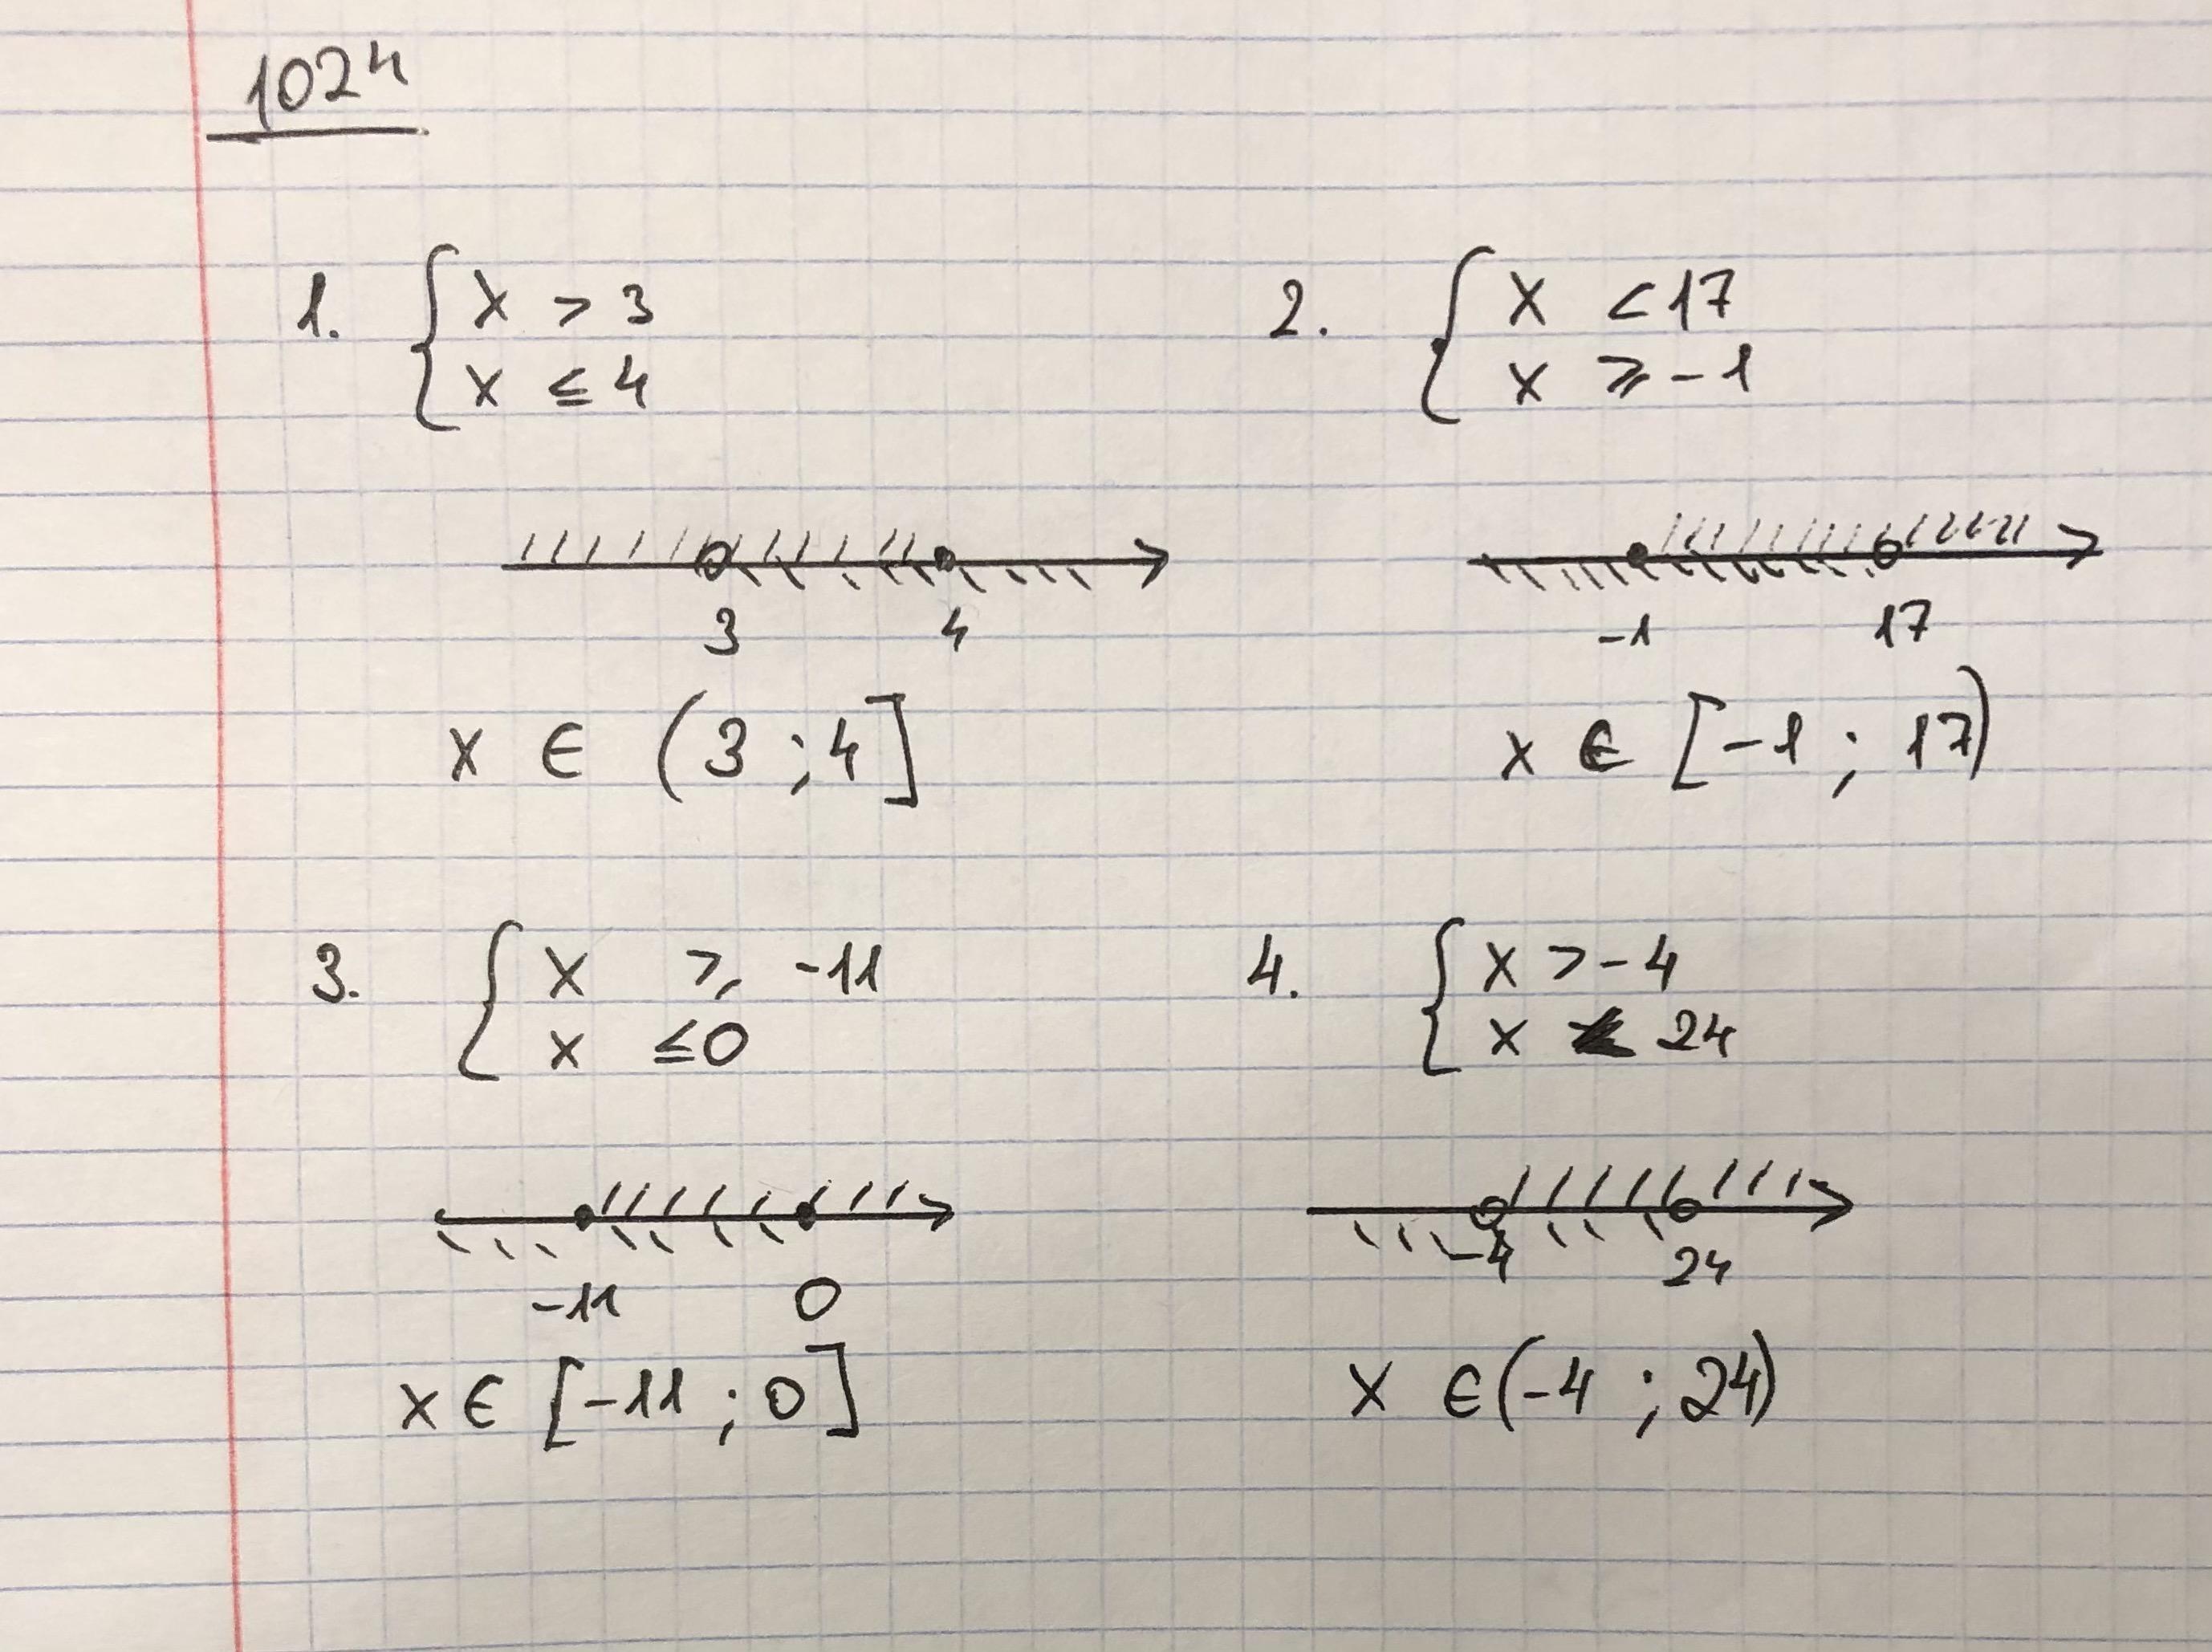 1024
1. { x > 3
x ≤ 4
3 4
x ∈ (3 ; 4]
2. { x < 17
x ≥ -1
-1 17
x ∈ [-1 ; 17)
3. { x ≥ -11
x ≤ 0
-11 0
x ∈ [-11 ; 0]
4. { x > -4
x < 24
-4 24
x ∈ (-4 ; 24)